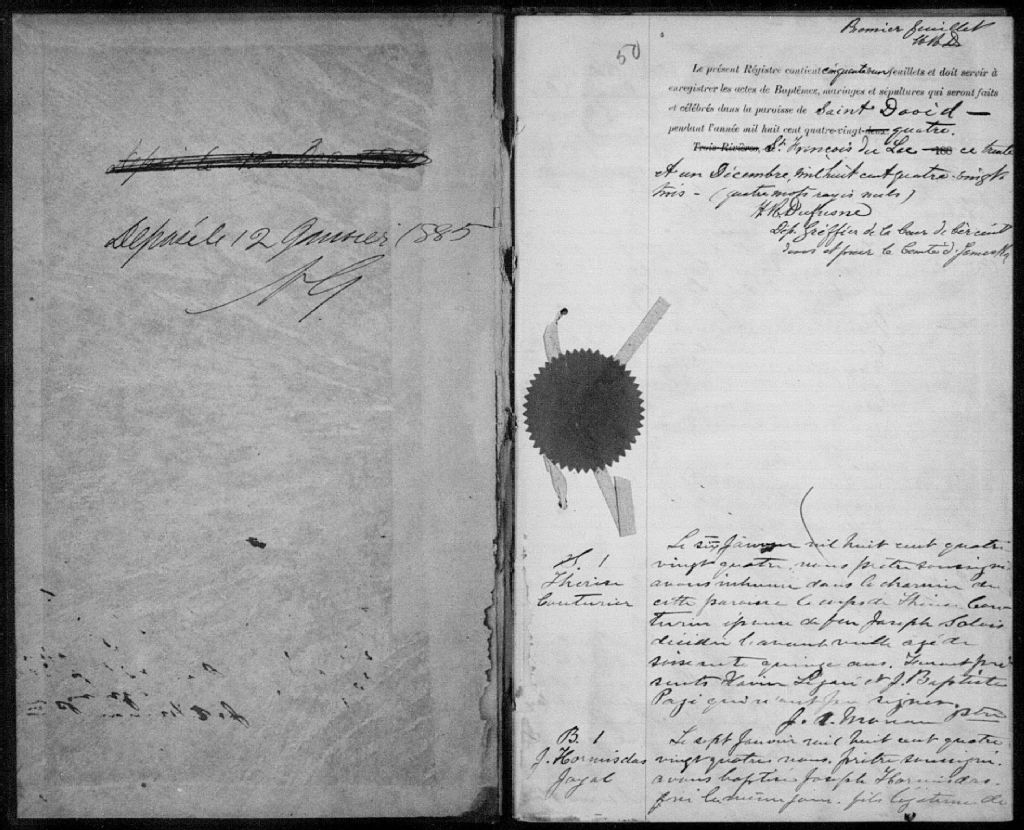 Déposé le 12 Janvier 1885
50
Premier feuillet
H.R.D.
Le présent Régistre contient cinquante un feuillets et doit servir à
enregistrer les actes de Baptêmes, mariages et sépultures qui seront faits
et célébrés dans la paroisse de Saint David —
pendant l'année mil huit cent quatre-vingt-deux quatre.
Trois-Rivières, St. François du Lac 188 ce trente
et un Décembre, mil huit cent quatre-vingt
trois - (quatre mots rayés nuls)
H.R. Dufresne
Dép. Greffier de la Cour de Circuit
dans et pour le Comté d'Yamaska
S. 1
Thérèse
Couturier
Le six Janvier mil huit cent quatre
vingt quatre, nous prêtre soussigné
avons inhumé dans le charnier de
cette paroisse le corps de Thérèse Cou-
turier épouse de feu Joseph Salois
décédée l'avant veille agé de
soixante quinze ans. Furent pré-
sents Xavier Légaré et J. Baptiste
Pagé qui n'ont su signer.
ptre
B. 1
J. Hormisdas
Le sept Janvier mil huit cent quatre
vingt quatre nous prêtre soussigné
avons baptisé Joseph Hormisdas
né le même jour fils légitime de